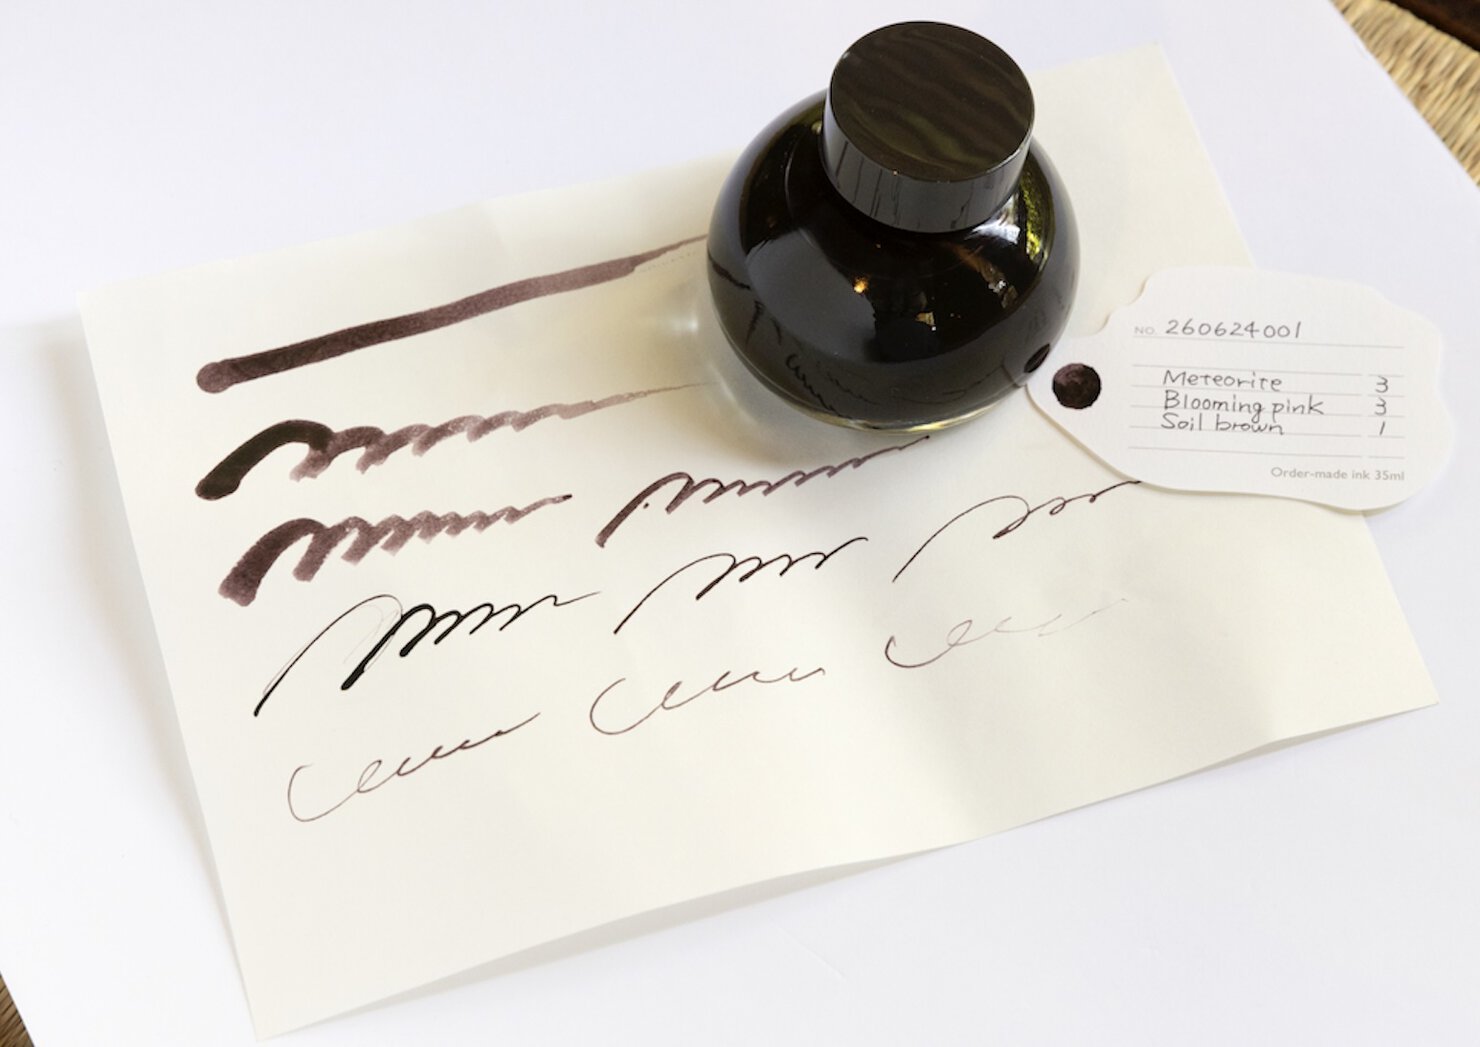 NO. 260624001
Meteorite 3
Blooming pink 3
Soil brown 1
Order-made ink 35ml